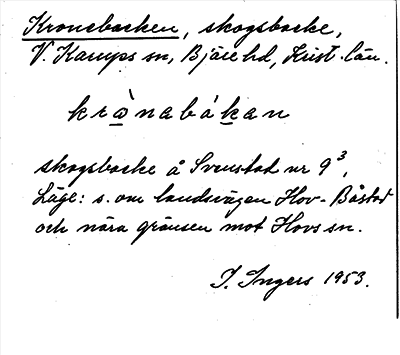 Kronebacken, skogsbacke,
V. Karups sn, Bjäre hd, Krist. län.
krònabákan
skogsbacke å Svenstad nr 9³,
Läge: s. om landsvägen Hov-Båstad
och nära gränsen mot Hovs sn.
I. Ingers 1953.